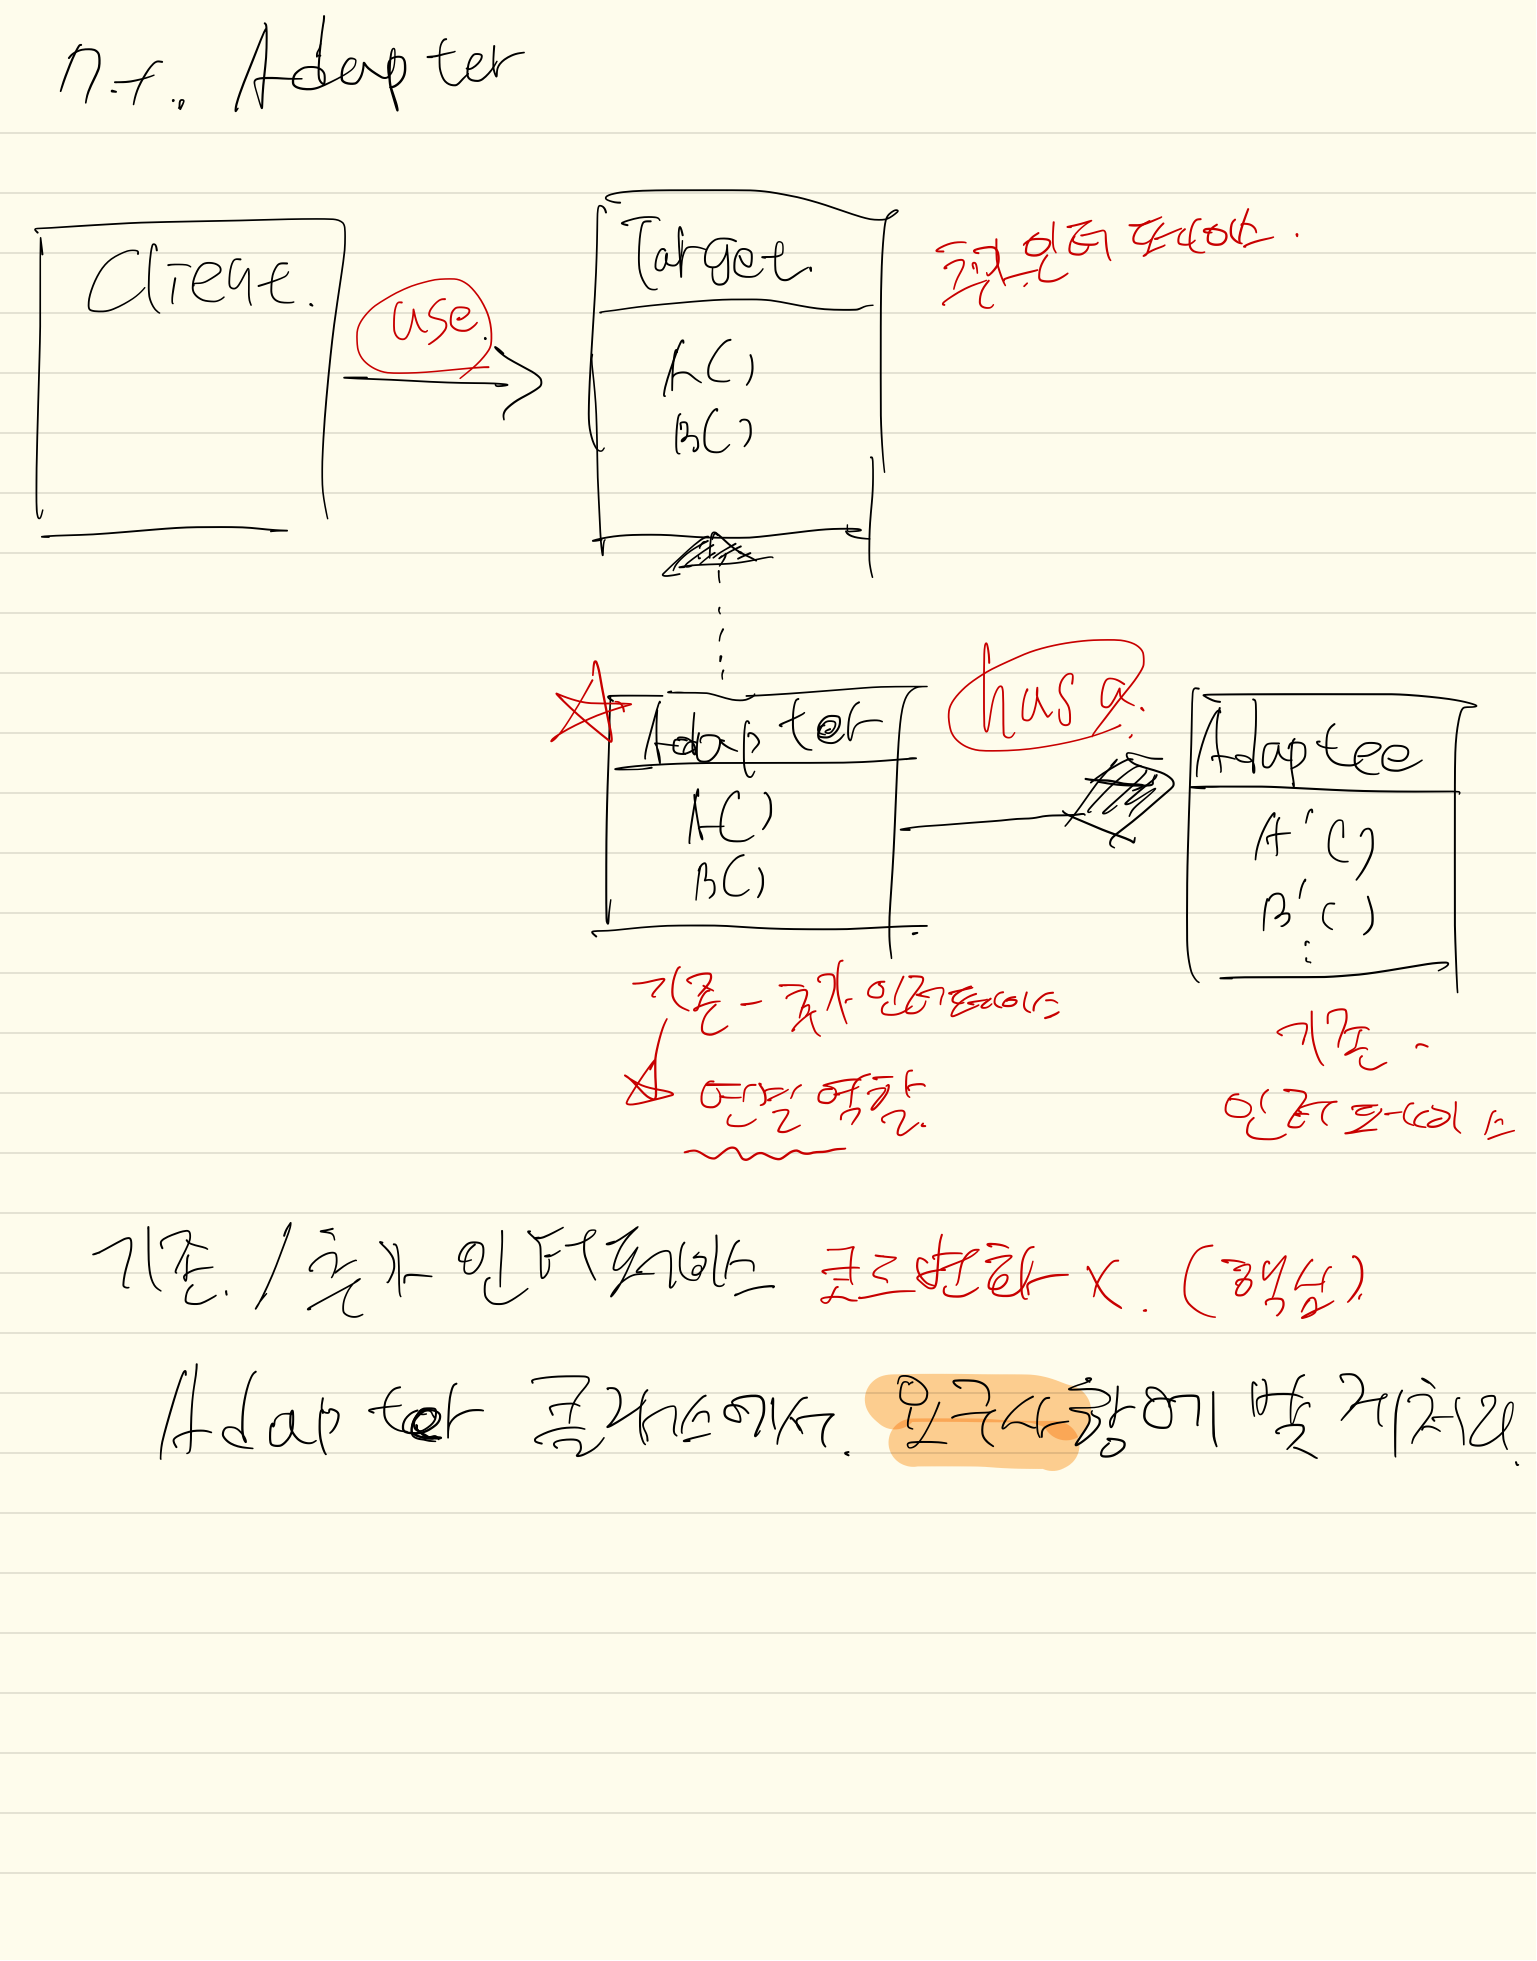 Adapter
Client.
use.
Target
A()
B()
추가 인터페이스.
Adapter
A()
B()
has a.
Adaptee
A'()
B'()
⋮
기존 - 추가 인터페이스
연결 역할.
기존
인터페이스
기존 / 추가 인터페이스 코드변화 X. (핵심)
Adapter 클래스에서. 요구사항에 맞게 처리.